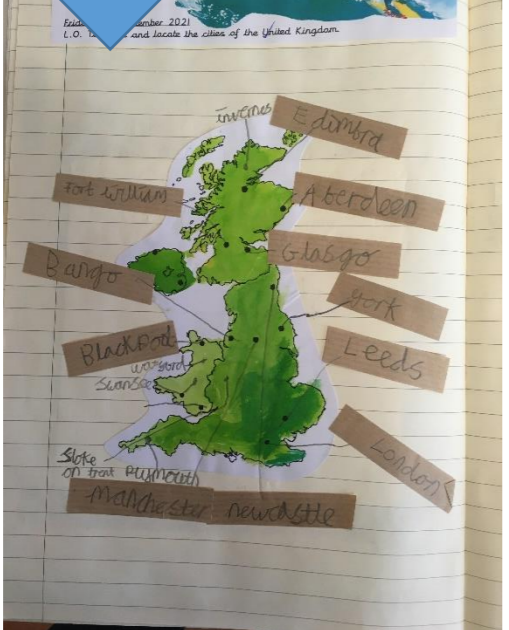 Frida ember 2021
L.O. and locate the cities of the United Kingdom
invernes
Edimbra
Fort william
Aberdeen
Glasgo
Bango
York
Blackpool
Leeds
Swansea
London
Stoke
on trent Plymouth
Manchester newcastle